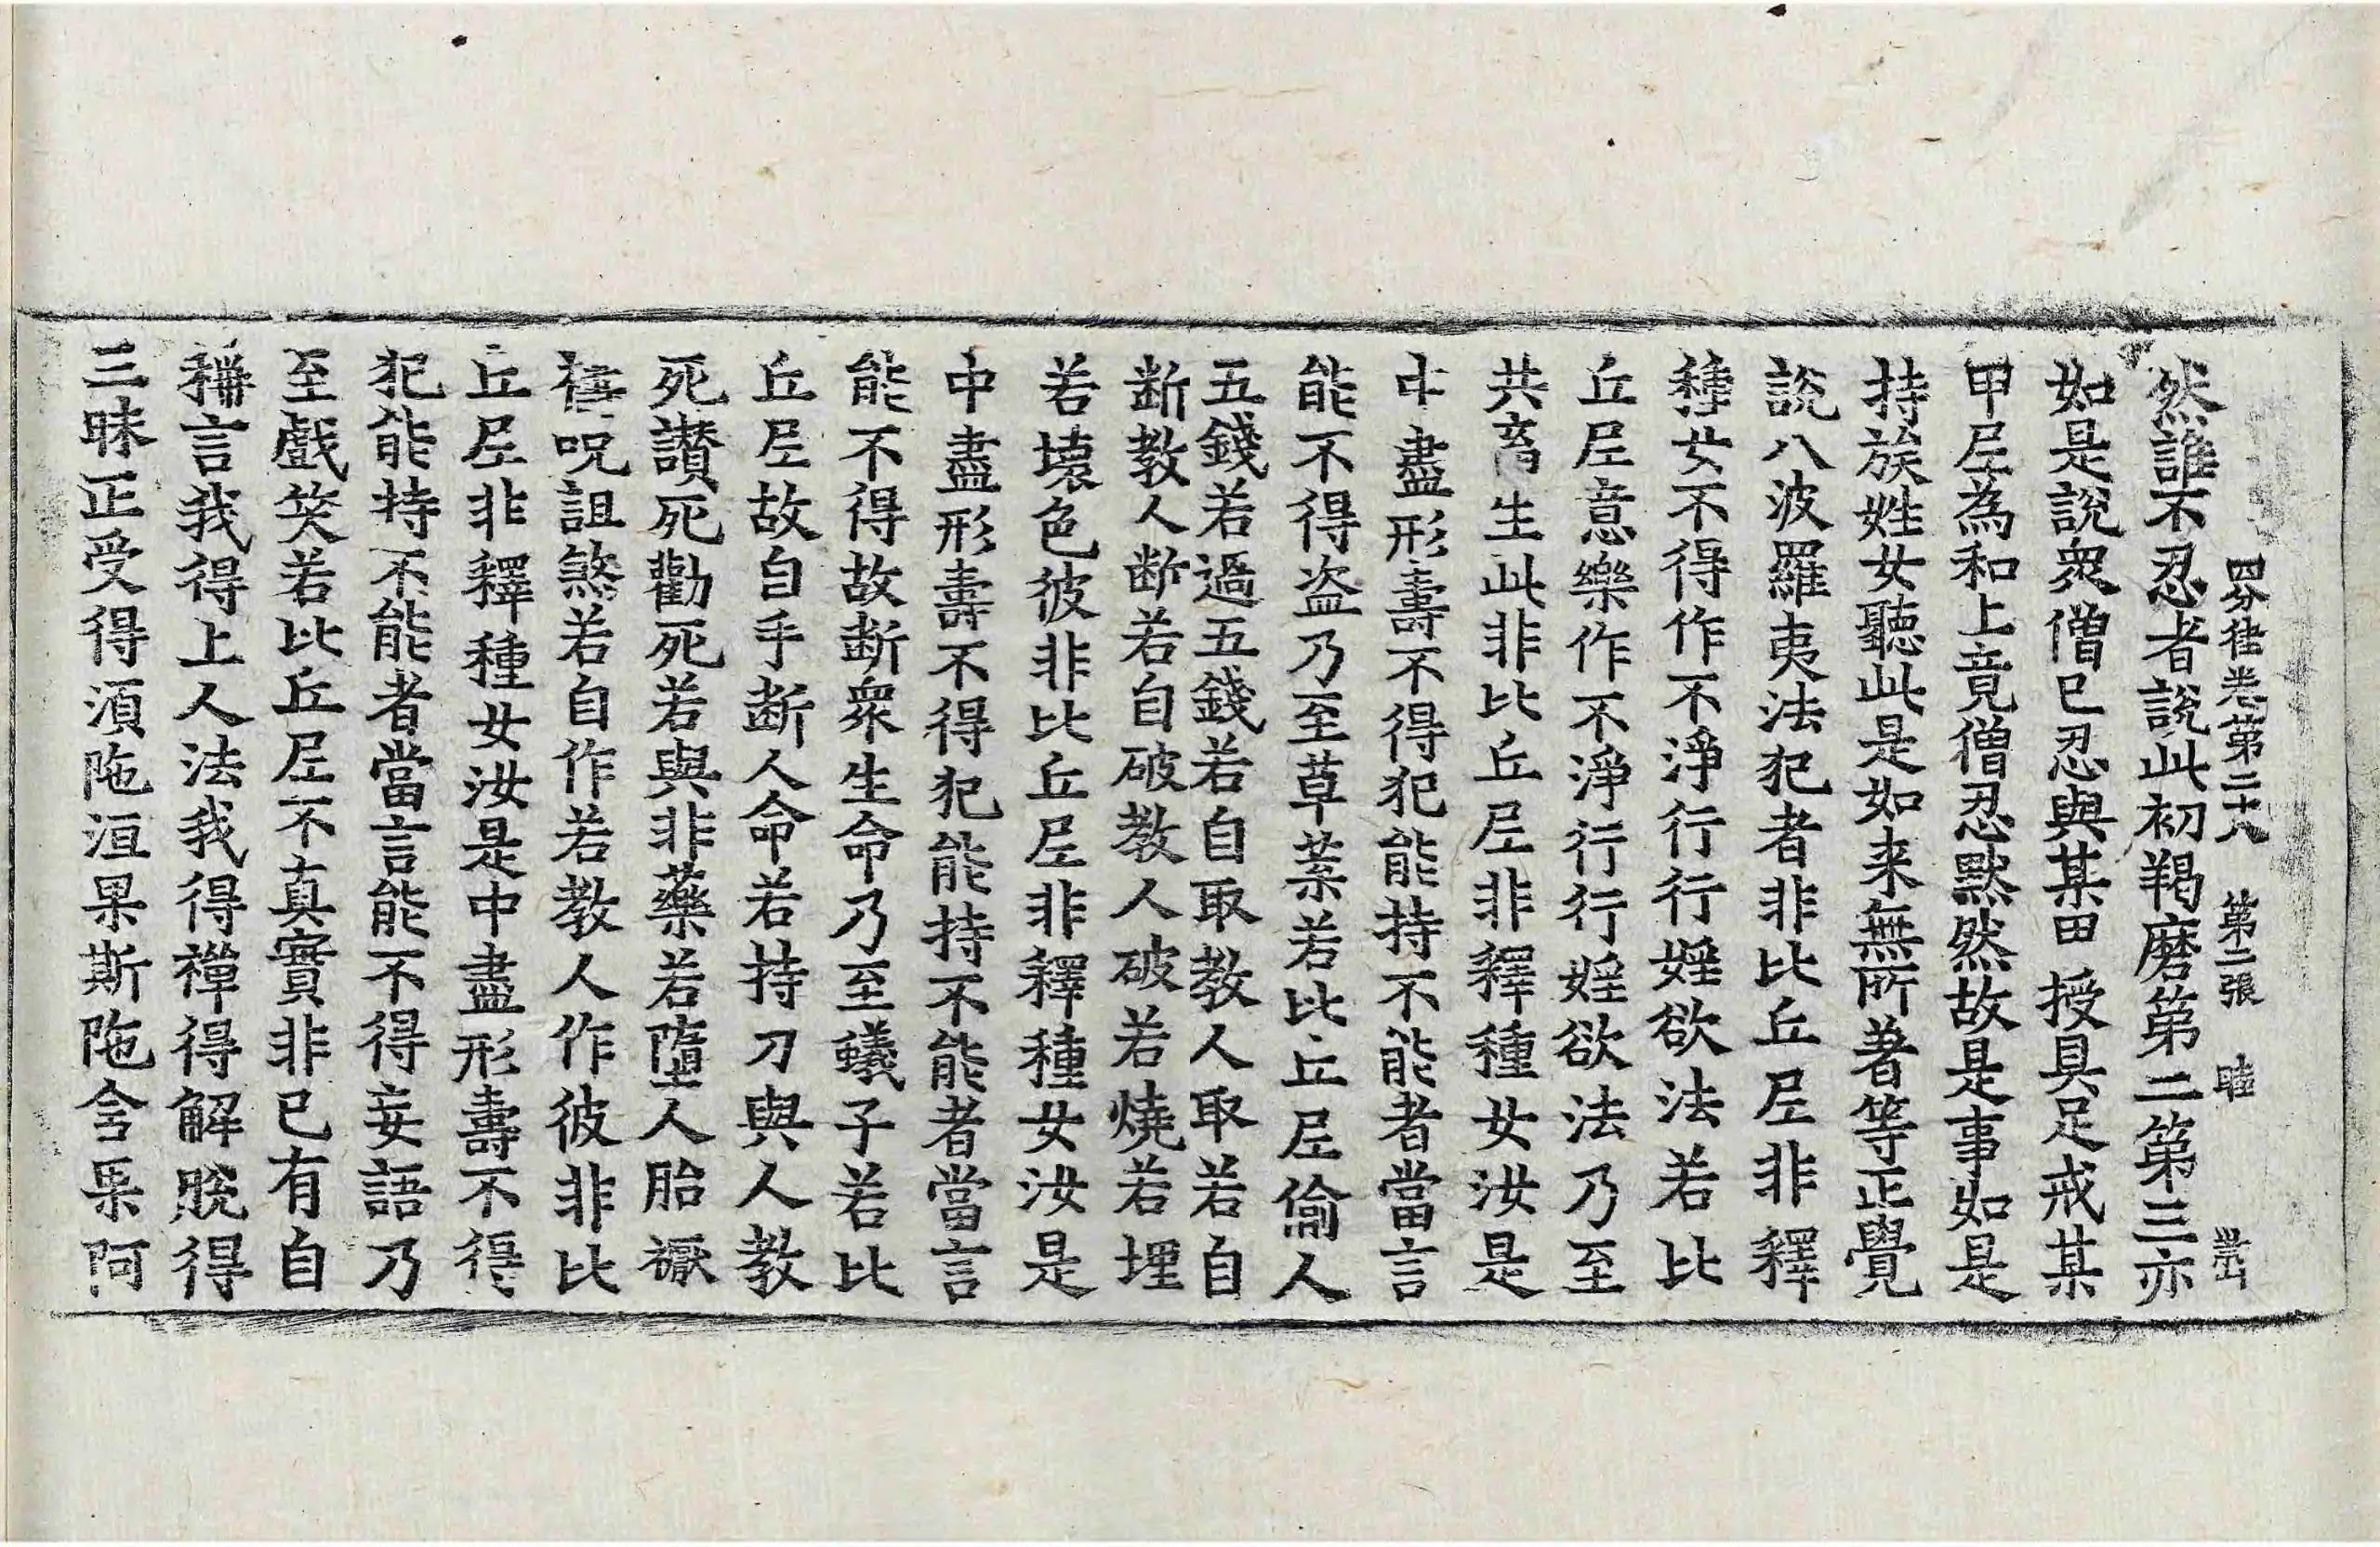 四分律卷第二十八 第二張 睦
然誰不忍者說此初羯磨第二第三亦
如是說衆僧已忍與某甲授具足戒某
甲尼為和上竟僧忍默然故是事如是
持族姓女聽此是如来無所著等正覺
說八波羅夷法犯者非比丘尼非釋
種女不得作不淨行行婬欲法若比
丘尼意樂作不淨行行婬欲法乃至
共畜生此非比丘尼非釋種女汝是
中盡形壽不得犯能持不能者當言
能不得盗乃至草葉若比丘尼偷人
五錢若過五錢若自取教人取若自
断教人断若自破教人破若燒若埋
若壞色彼非比丘尼非釋種女汝是
中盡形壽不得犯能持不能者當言
能不得故断衆生命乃至蟻子若比
丘尼故自手断人命若持刀與人教
死讃死勸死若與非藥若墮人胎禰
禱呪詛煞若自作若教人作彼非比
丘尼非釋種女汝是中盡形壽不得
犯能持不能者當言能不得妄語乃
至戲笑若比丘尼不真實非已有自
稱言我得上人法我得禪得解脫得
三昧正受得湏陁洹果斯陁含果阿